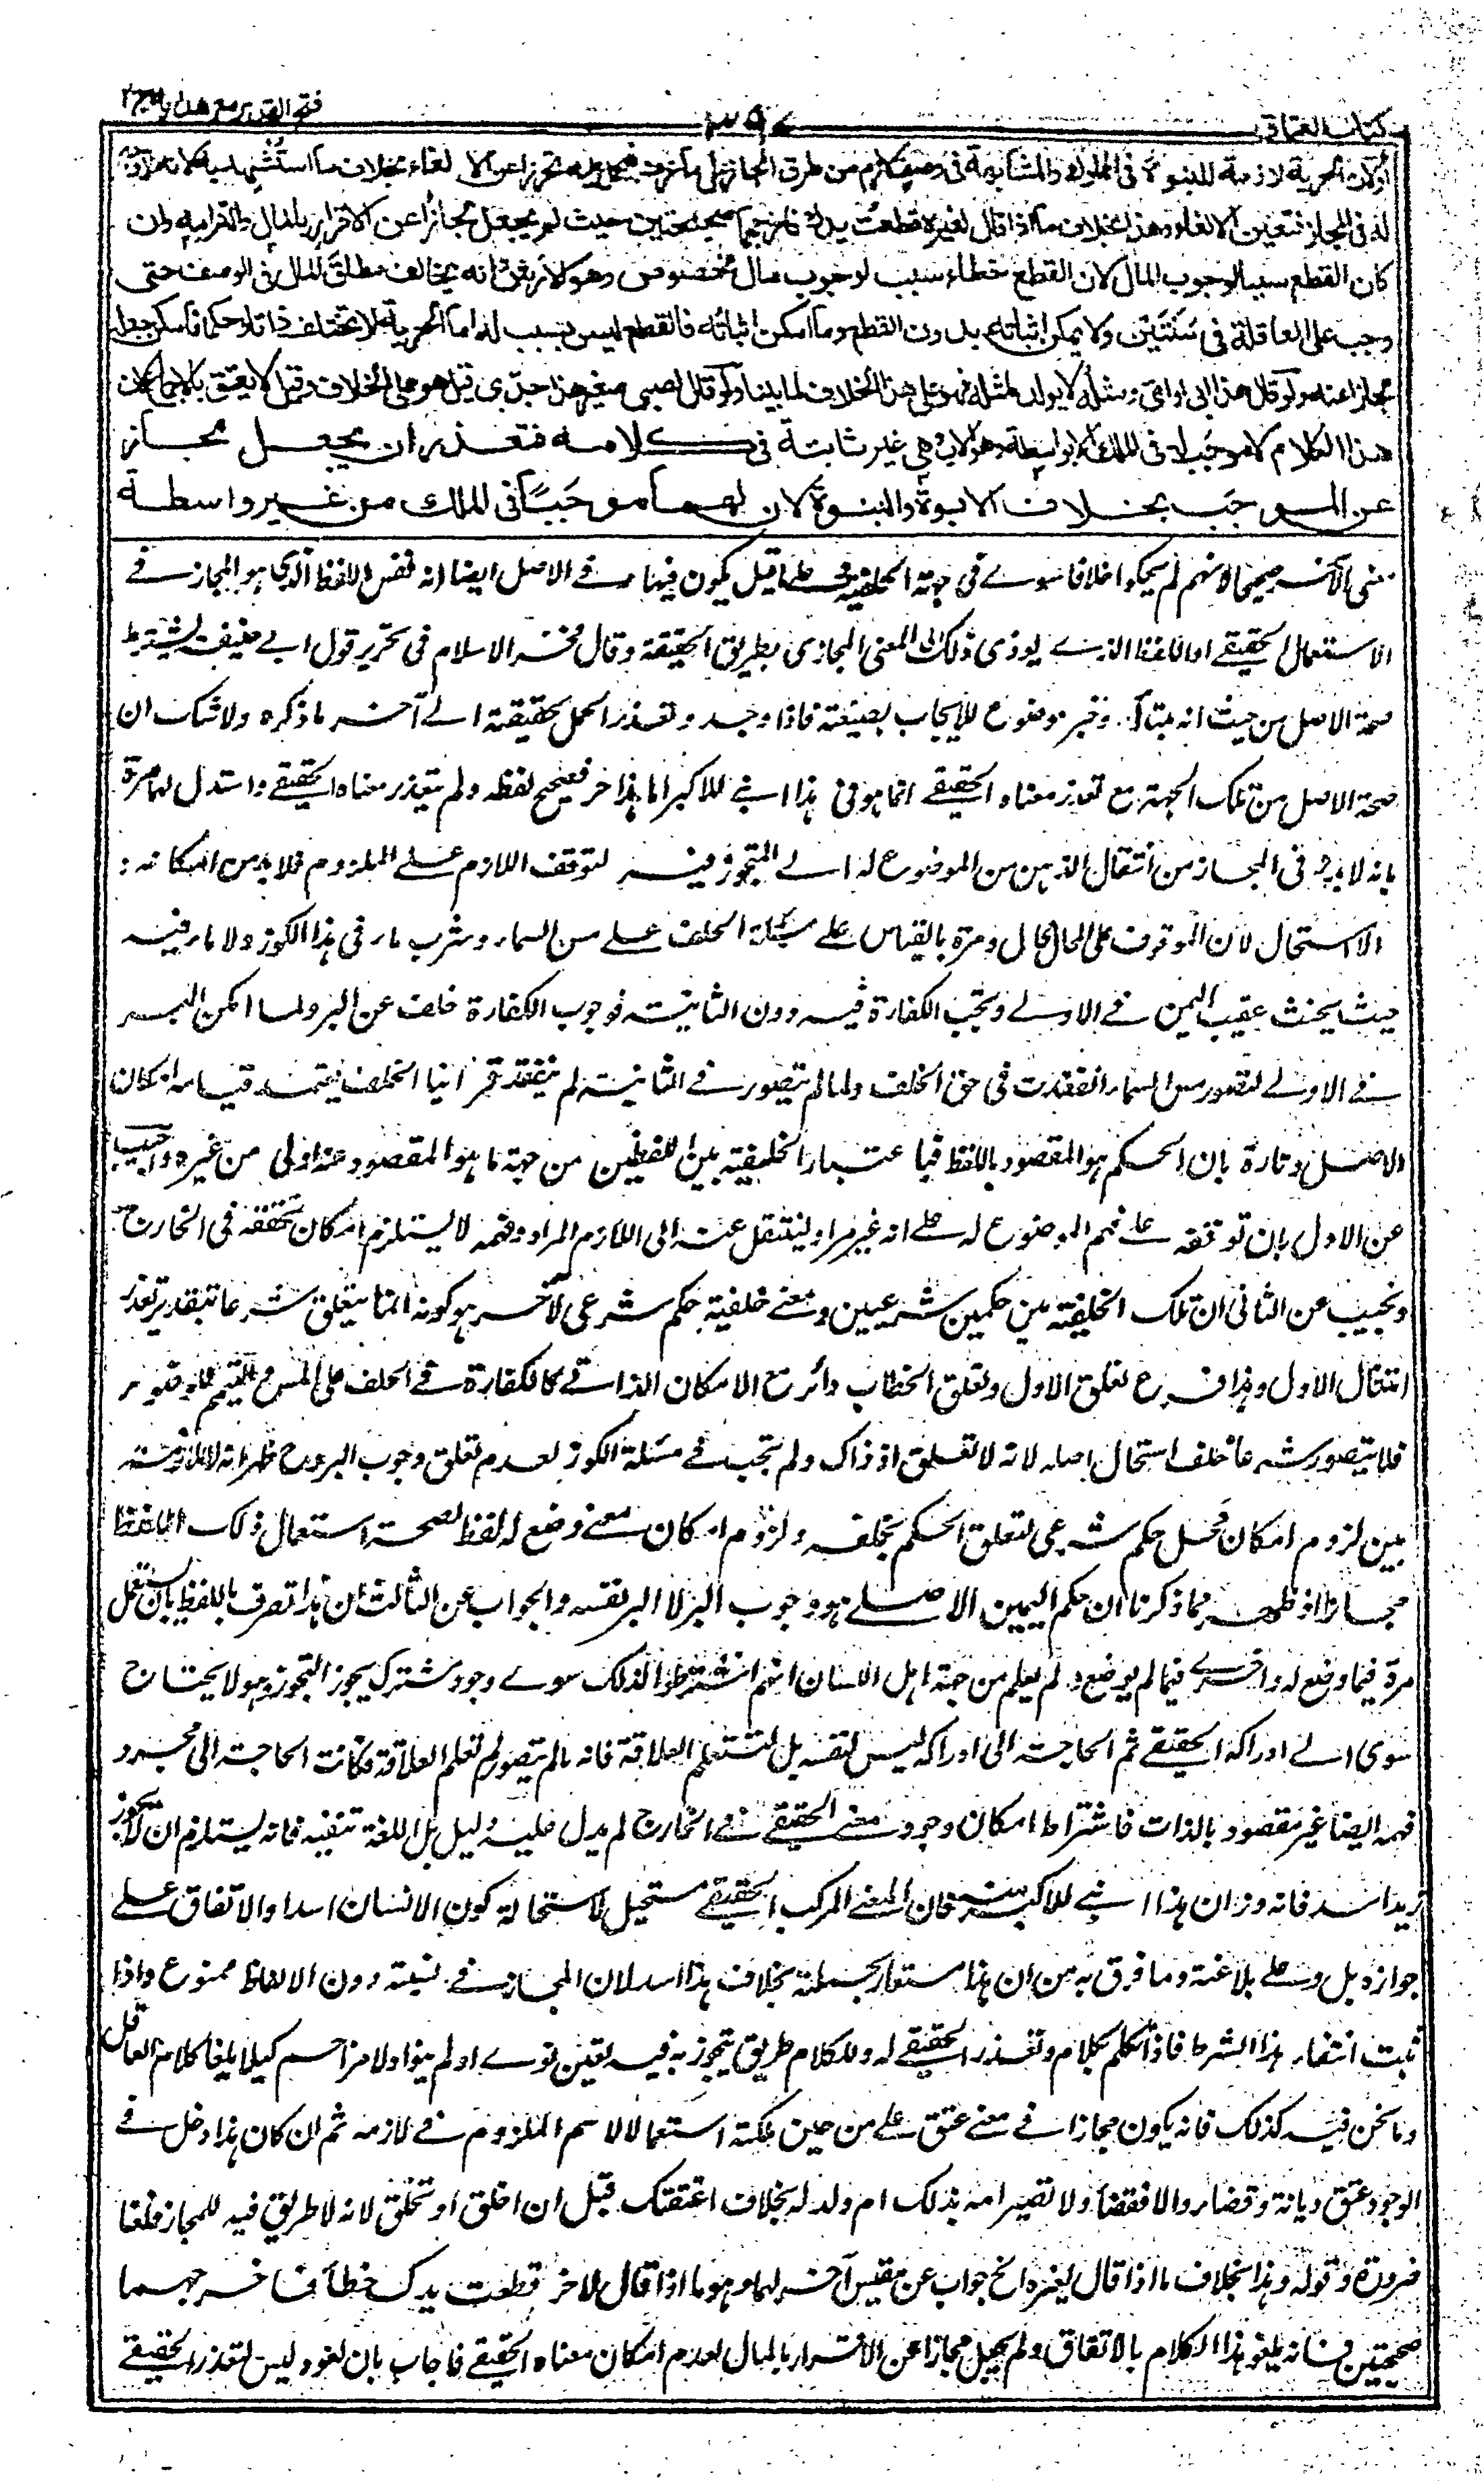 كتاب العتاق
فتح القدير مع هداية ج ٢
أو لأن الحرية لازمة للبنوة في المملوك والمشابهة في وصف لازم من طرق المجاز على ما عرف فيحمل عليه تحرزا عن الالغاء بخلاف ما استشهد به لانه لا وجه
له في المجاز فتعين الالغاء وهذا بخلاف ما اذا قال لغيره قطعت يدك فاخرجهما صحيحتين حيث لم يجعل مجازا عن الاقرار بالمال والتزامه وان
كان القطع سببا لوجوب المال لان القطع خطاء سبب لوجوب مال مخصوص وهو الارش وانه يخالف مطلق المال في الوصف حتى
وجب على العاقلة في سنتين ولا يمكن اثباته بدون القطع وما امكن اثباته فالقطع ليس بسبب له اما الحرية لا تختلف ذاتا وحكما فامكن جعله
مجازا عنه ولو قال هذا ابي او امي ومثله لا يولد لمثله فهو على هذا الخلاف لما بينا ولو قال لصبي صغير هذا جدي قيل هو على الخلاف وقيل لا يعتق بالاجماع لان
هذا الكلام لا موجب له في الملك الا بواسطة وهو الاب وهي غير ثابتة في كلامه فتعذر ان يجعل مجاز
عن الموجب بخلاف الابوة والبنوة لان لهما موجبا في الملك من غير واسطة
معنى الآخر صحيحا لانهم لم يحكوا خلافا سوى في جهة الخلفية فعلى ما قيل يكون فيها وفي الاصل ايضا انه نفس اللفظ الذي هو المجاز في
الاستعمال الحقيقي او اللفظ الذي يودي ذلك المعنى المجازي بطريق الحقيقة وقال فخر الاسلام في تحرير قول ابي حنيفة يشترط
صحة الاصل من حيث انه مبتدأ وخبر موضوع للايجاب بصيغته فاذا وجد وتعذر العمل بحقيقته الى آخر ما ذكره ولا شك ان
صحة الاصل من تلك الجهة مع تعذر معناه الحقيقي انما هو في هذا ابني للاكبر اما هذا حر فصحيح لفظه ولم يتعذر معناه الحقيقي واستدل لهما مرة
بانه لا بد في المجاز من انتقال الذهن من الموضوع له الى المتجوز فيه لتوقف اللازم على الملزوم فلا بد من امكانه
الاستحال لان الموقوف على المحال محال ومرة بالقياس على مسئلة الحلف على مس السماء وشرب ماء في هذا الكوز ولا ماء فيه
حيث يحنث عقيب اليمين في الاولى وتجب الكفارة فيه دون الثانية فوجوب الكفارة خلف عن البر ولما امكن البر
في الاولى لتصور مس السماء انعقدت في حق الخلف ولما لم يتصور في الثانية لم تنعقد
الاصل وتارة بان الحكم هو المقصود باللفظ فاعتبار الخلفية بين اللفظين من جهة ما هو المقصود عنه اولى من غيره واجيب
عن الاول بان توقفه على فهم الموضوع له على انه غير مراد لينتقل عنه الى اللازم المراد وفهمه لا يستلزم امكان تحققه في الخارج
ونجيب عن الثاني ان تلك الخلفية بين حكمين شرعيين ومعنى خلفية حكم شرعي لآخر هو كونه انما يتعلق شرعا بتقدير تعذر
امتثال الاول وهذا فرع تعلق الاول وتعلق الخطاب دائر مع الامكان الذاتي كالكفارة في الحلف على المس
فلا يتصور شرعا خلف استحال اصله لانه لا تعلق اذ ذاك ولم تجب في مسئلة الكوز لعدم تعلق وجوب البر وح ظهر انه لا ملازمة
بين لزوم امكان محل حكم شرعي لتعلق الحكم بخلفه ولزوم امكان معنى وضع له لفظ لصحة استعمال ذلك اللفظ
مجازا اذ ظهر مما ذكرنا ان حكم اليمين الاصلي هو وجوب البر لا البر نفسه والجواب عن الثالث ان هذا تصرف باللفظ بان يستعمل
مرة فيما وضع له واخرى فيما لم يوضع له ولم يعلم من جهة اهل اللسان انهم اشترطوا لذلك سوى وجود مشترك يجوز التجوز وهو لا يحتاج
سوى الى ادراك الحقيقي ثم الحاجة الى ادراكه ليس لنفسه بل لتعلم العلاقة فانه ما لم يتصور لم تعلم العلاقة فكانت الحاجة الى مجرد
فهمه ايضا غير مقصود بالذات فاشتراط امكان وجود معنى الحقيقي في الخارج لم يدل عليه دليل بل اللغة تنفيه فانه يستلزم ان لا يجوز
زيد اسد فانه وزان هذا ابني للاكبر منه فان المعنى المركب الحقيقي مستحيل لاستحالة كون الانسان اسدا والاتفاق على
جوازه بل وعلى بلاغته وما فرق به من ان هذا مستعار بجملته بخلاف هذا اسد لان المجاز في نسبته دون الالفاظ ممنوع واذا
ثبت انتفاء هذا الشرط فاذا تكلم بكلام وتعذر الحقيقي له وللكلام طريق يتجوز به فيه تعين نوى او لم ينو اولا مزاحم كيلا يلغا كلام العاقل
وما نحن فيه كذلك فانه يكون مجازا في معنى عتق علي من حين ملكته استعمالا لاسم الملزوم في لازمه ثم ان كان هذا دخل في
الوجود عتق ديانة وقضاء والا فقضاء ولا تصير امه بذلك ام ولد له بخلاف اعتقتك قبل ان اخلق او تخلق لانه لا طريق فيه للمجاز فلغا
ضرورة وقوله وهذا بخلاف ما اذا قال لغيره الخ جواب عن مقيس آخر لهما وهو ما اذا قال لآخر قطعت يدك خطأ فاخرجهما
صحيحتين فانه يلغو هذا الكلام بالاتفاق ولم يجعل مجازا عن الاقرار بالمال لعدم امكان معناه الحقيقي فاجاب بان لغوه ليس لتعذر الحقيقي